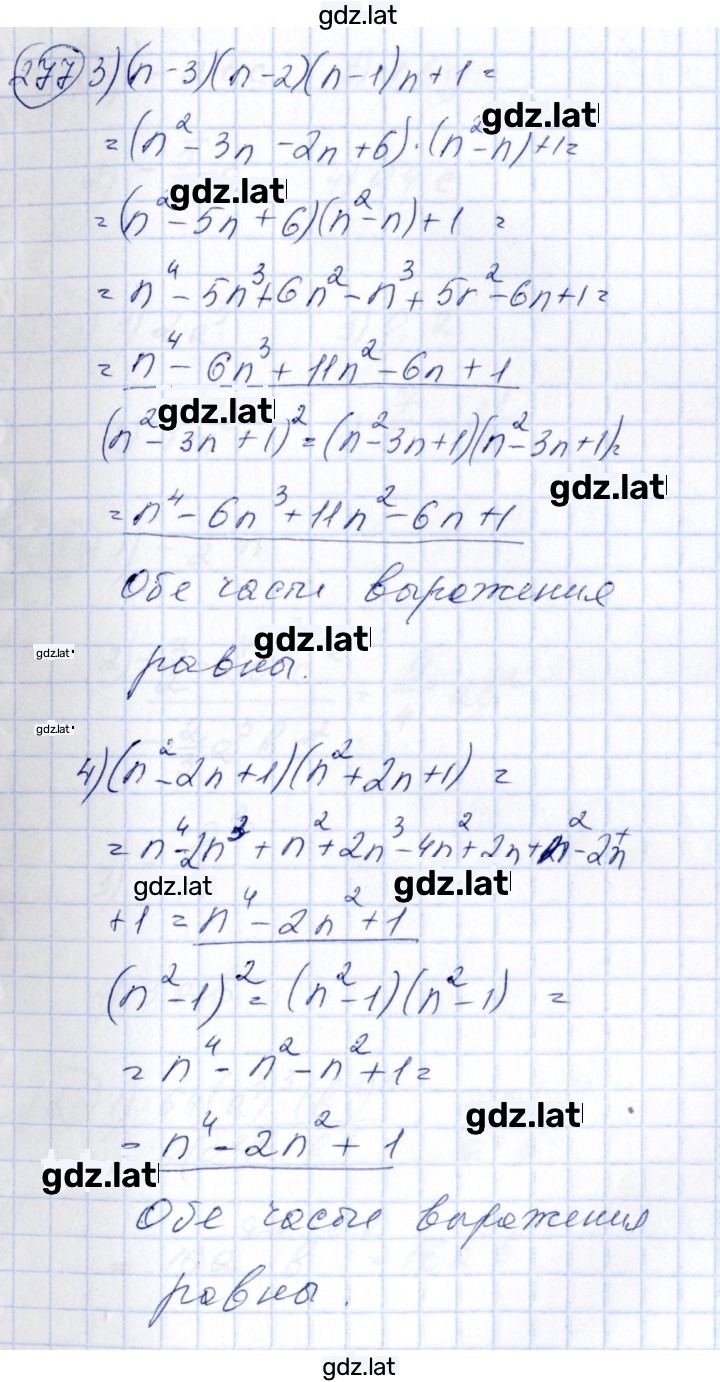 gdz.lat
277 3) (n-3)(n-2)(n-1)n+1=
gdz.lat
=(n²-3n-2n+6)·(n²-n)+1=
gdz.lat
=(n²-5n+6)(n²-n)+1=
=n⁴-5n³+6n²-n³+5n²-6n+1=
=n⁴-6n³+11n²-6n+1
gdz.lat
(n²-3n+1)²=(n²-3n+1)(n²-3n+1)=
gdz.lat
=n⁴-6n³+11n²-6n+1
Обе части выражения
gdz.lat
gdz.lat
равны.
gdz.lat
4) (n²-2n+1)(n²+2n+1)=
=n⁴-2n³+n²+2n³-4n²+2n+n²-2n+
gdz.lat
gdz.lat
+1=n⁴-2n²+1
(n²-1)²=(n²-1)(n²-1)=
=n⁴-n²-n²+1=
gdz.lat
=n⁴-2n²+1
gdz.lat
Обе части выражения
равны.
gdz.lat